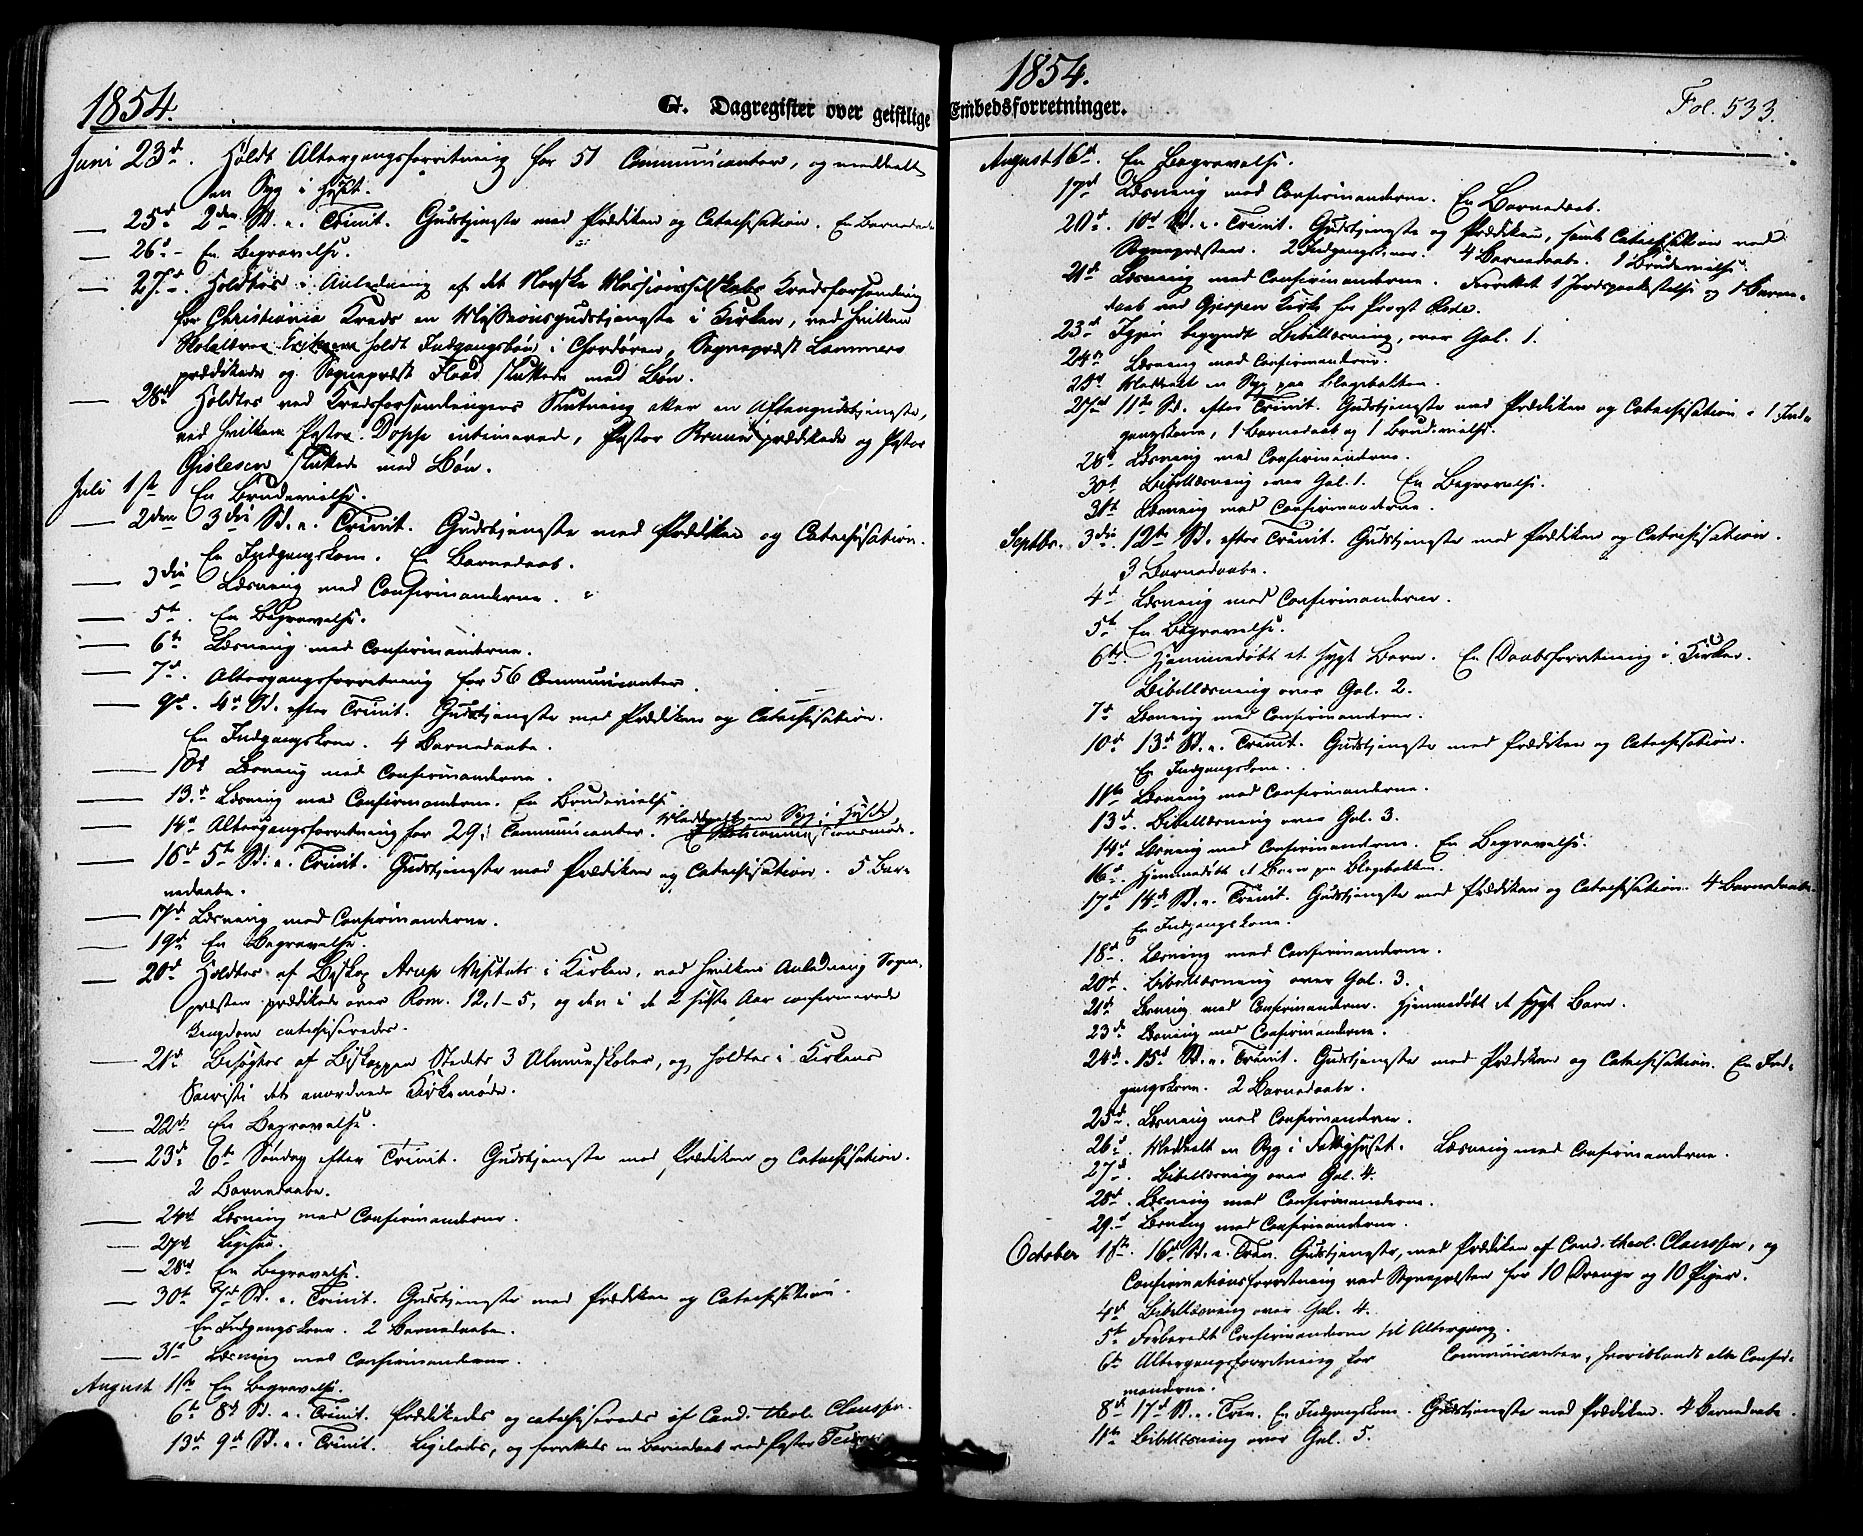 1854.
G. Dagregister over geistlige
Juni 23d. Holdt Altergangsforretning for 51 Communicanter, og meddeelt
en Syg i Huset.
25d 2den Sd. e. Trinit. Gudstjeneste med Prædiken og Catechisation. En Barnedaab
26d En Begravelse.
27d Holdtes i Anledning af det Norske Missionsselskabs Kredsforsamling
for Christiania Kreds en Missionsgudstjeneste i Kirken, ved hvilken
Skolelærer holdt Indgangsbøn i Chordøren, Sognepræst Lammers
prædikede og Sognepræst Flood sluttede med Bøn.
28d Holdtes ved Kredsforsamlingens Slutning atter en Aftengudstjeneste,
ved hvilken Pastor Doppe intimerede, Pastor Bruun prædikede og Pastor
Gislesen sluttede med Bøn.
Juli 1ste En Brudevielse.
2den 3die Sd. e. Trinit. Gudstjeneste med Prædiken og Catechisation.
En Indgangskone. En Barnedaab.
3die Læsning med Confirmanderne.
5te. En Begravelse.
6te Læsning med Confirmanderne.
7d. Altergangsforretning for 56 Communicanter.
9d. 4d Sd. efter Trinit. Gudstjeneste med Prædiken og Catechisation.
En Indgangskone. 4 Barnedaabe.
10d Læsning med Confirmanderne.
13d Læsning med Confirmanderne. En Brudevielse
14d Altergangsforretning for 29 Communicanter. Meddeelt en Syg i
16d 5te Sd. e. Trinit. Gudstjeneste med Prædiken og Catechisation. 5 Bar-
nedaabe.
17d Læsning med Confirmanderne.
19d En Begravelse.
20d Holdtes af Biskop Arup Visitats i Kirken, ved hvilken Anledning Sogne-
præsten prædikede over Rom. 12, 1-5, og den i de 2 sidste Aar confirmerede
Ungdom catechiseredes.
21d Besøgtes af Biskoppen Stedets 3 Almueskoler, og holdtes i Kirkens
Sacristi det anordnede Kirkemøde.
22d En Begravelse.
23d 6te Søndag efter Trinit. Gudstjeneste med Prædiken og Catechisation.
2 Barnedaabe.
24d Læsning med Confirmanderne.
27d Ligesaa.
28d En Begravelse.
30te 7d Sd. e. Trinit. Gudstjeneste med Prædiken og Catechisation.
En Indgangskone. 2 Barnedaabe.
31d Læsning med Confirmanderne.
August 1ste En Begravelse.
6te 8d Sd. e. Trinit. Prædikedes og catechiseredes af Cand. theol. Claussen.
13d 9d Sd. e. Trinit. Ligeledes, og forrettedes en Barnedaab ved Pastor
1854.
Embedsforretninger.
Fol. 533.
August 16d. En Begravelse.
17d Læsning med Confirmanderne. En Barnedaab.
20d. 10d Sd. e. Trinit. Gudstjeneste og Prædiken, samt Catechisation ved
Sognepræsten. 2 Indgangskoner. 4 Barnedaabe. 1 Brudevielse.
21d Læsning med Confirmanderne. Forrettet 1 Jordspaakastelse og 1 Barne-
daab ved Gjerpen Kirke for Provst Rode.
23d Igjen begyndt Bibellæsning, over Gal. 1.
24d Læsning med Confirmanderne.
25d Meddeelt en Syg paa Blegebakken.
27d 11te Sd. efter Trinit. Gudstjeneste med Prædiken og Catechisation. 1 Ind-
gangskone, 1 Barnedaab og 1 Brudevielse.
28d Læsning med Confirmanderne.
30te Bibellæsning over Gal. 1. En Begravelse.
31te Læsning med Confirmanderne.
Septbr. 3die. 12te Sd. efter Trinit. Gudstjeneste med Prædiken og Catechisation.
3 Barnedaabe.
4d Læsning med Confirmanderne.
5te En Begravelse.
6te. Hjemmedøbt et sygt Barn. En Daabsforretning i Kirken.
Bibellæsning over Gal. 2.
7d Læsning med Confirmanderne.
10d 13d Sd. e. Trinit. Gudstjeneste med Prædiken og Catechisation.
En Indgangskone.
11te Læsning med Confirmanderne.
13d. Bibellæsning over Gal. 3.
14d Læsning med Confirmanderne. En Begravelse.
16d. Hjemmedøbt et Barn paa Blegebakken.
17d 14d Sd. e. Trinit. Gudstjeneste med Prædiken og Catechisation. 4 Barnedaabe.
En Indgangskone.
18d. Læsning med Confirmanderne.
20d. Bibellæsning over Gal. 3.
21d. Læsning med Confirmanderne. Hjemmedøbt et sygt Barn.
23d Læsning med Confirmanderne.
24d. 15d Sd. e. Trinit. Gudstjeneste med Prædiken og Catechisation. En Ind-
gangskone. 2 Barnedaabe.
25d. Læsning med Confirmanderne.
26d Meddeelt en Syg i Fattighuset. Læsning med Confirmanderne.
27d. Bibellæsning over Gal. 4.
28d. Læsning med Confirmanderne.
29d Læsning med Confirmanderne.
October 1ste. 16d Sd. e. Trin. Gudstjeneste, med Prædiken af Cand. theol. Claussen, og
Confirmationsforretning ved Sognepræsten for 10 Drenge og 10 Piger.
4d Bibellæsning over Gal. 4.
5te Forberedt Confirmanderne til Altergang.
6te Altergangsforretning for Communicanter, hvoriblandt alle Confir-
manderne.
8d 17d Sd. e. Trin. En Indgangskone. Gudstjeneste med Prædiken. 4 Barnedaabe.
11te Bibellæsning over Gal. 5.